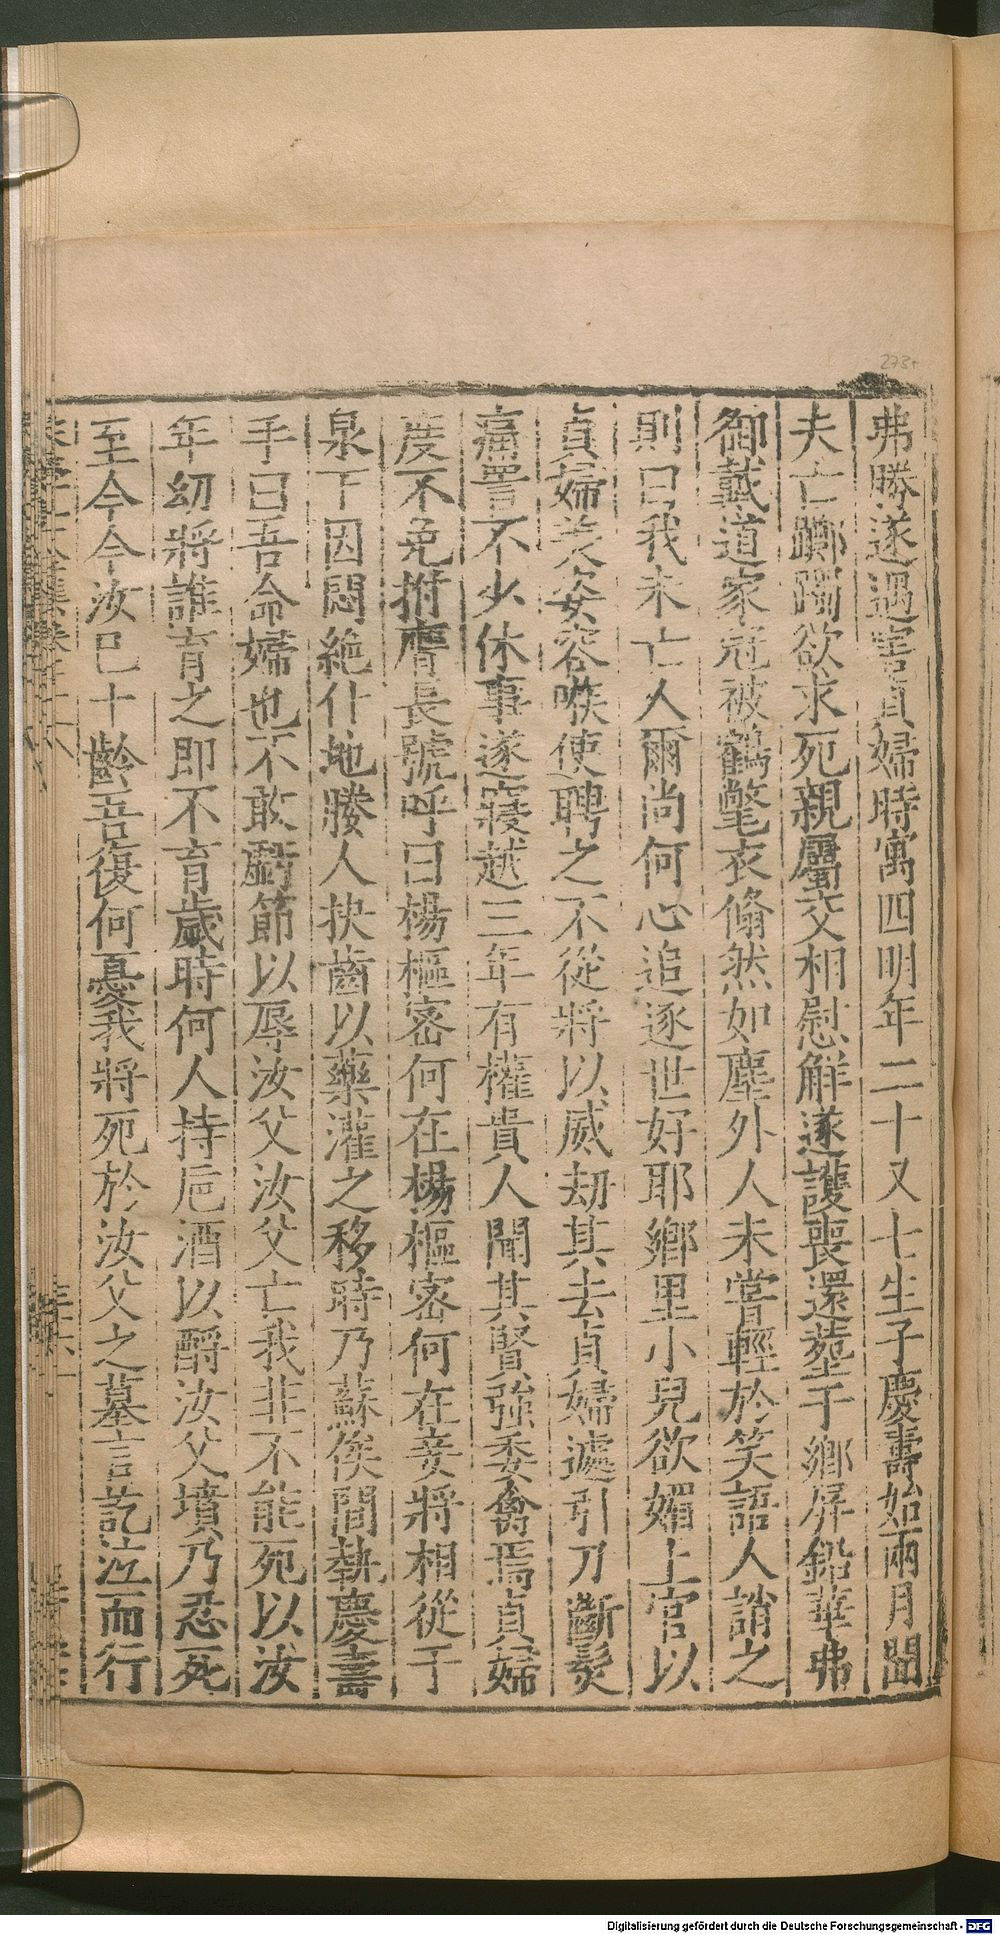 弗勝遂遇害貞婦時寓四明年二十又七生子慶壽始兩月聞
夫亡躑躅欲求死親屬交相慰解遂護喪還塟于鄉屏鉛華弗
御戴道家冠被鶴氅衣翛然如塵外人未嘗輕於笑語人誚之
則曰我未亡人爾尚何心追逐世好耶鄉里小兒欲媚上官以
貞婦美姿容嗾使聘之不從將以威刼其去貞婦遽引刀斷髮
痛詈不少休事遂寢越三年有權貴人聞其賢強委禽焉貞婦
度不免拊膺長號呼曰楊樞密何在楊樞密何在妾將相從于
泉下因悶絶仆地媵人抉齒以藥灌之移時乃蘇俟間執慶壽
手曰吾命婦也不敢虧節以辱汝父汝父亡我非不能死以汝
年幼將誰育之即不育歲時何人持巵酒以酹汝父墳乃忍死
至今今汝已十齡吾復何憂我將死於汝父之墓言訖泣而行
273r
Digitalisierung gefördert durch die Deutsche Forschungsgemeinschaft - DFG